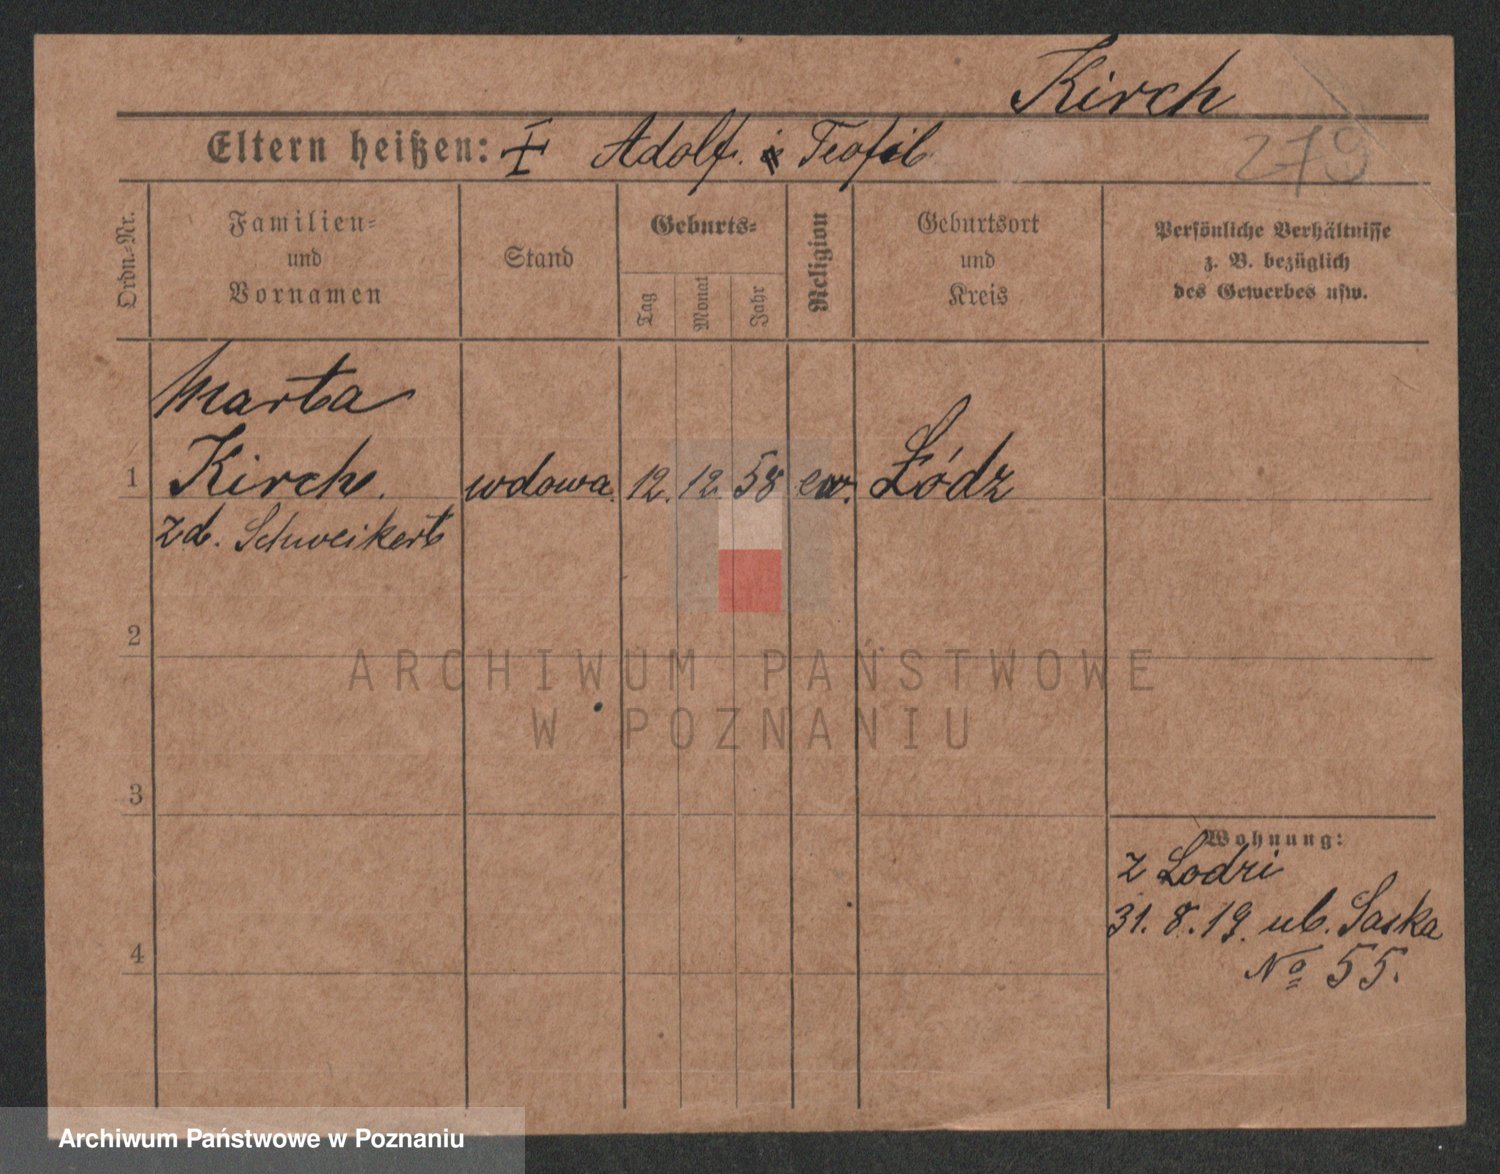 Kirch
Eltern heißen: ‡ Adolf. i Teofil
279
Ordn.-Nr.
Familien-
und
Vornamen
Stand
Geburts-
Tag
Monat
Jahr
Religion
Geburtsort
und
Kreis
Persönliche Verhältnisse
z. B. bezüglich
des Gewerbes usw.
Marta
1 Kirch. wdowa. 12. 12. 58 ew. Łódz
zd. Schweikert
2
ARCHIWUM PAŃSTWOWE
W POZNANIU
3
Wohnung:
z Lodzi
31. 8. 19. ul. Saska
4
№ 55.
Archiwum Państwowe w Poznaniu